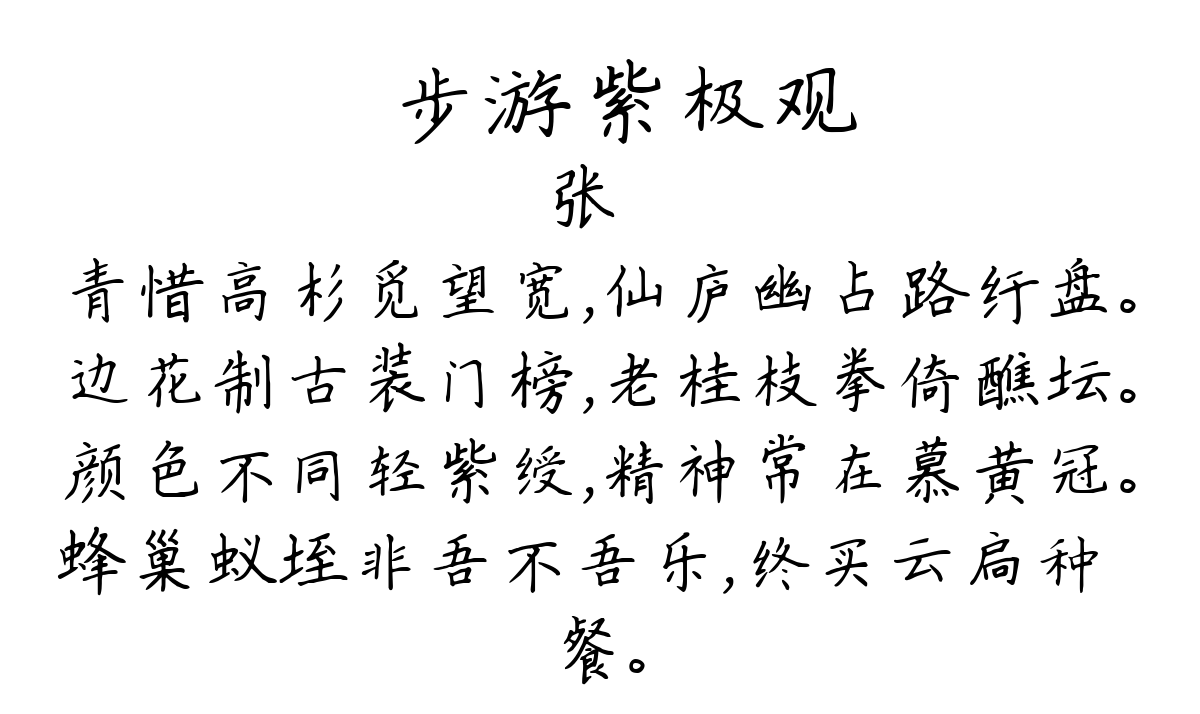 步游紫极观
张
青惜高杉觅望宽,仙庐幽占路纡盘。
边花制古装门榜,老桂枝拳倚醮坛。
颜色不同轻紫绶,精神常在慕黄冠。
蜂巢蚁垤非吾不吾乐,终买云扃种
餐。